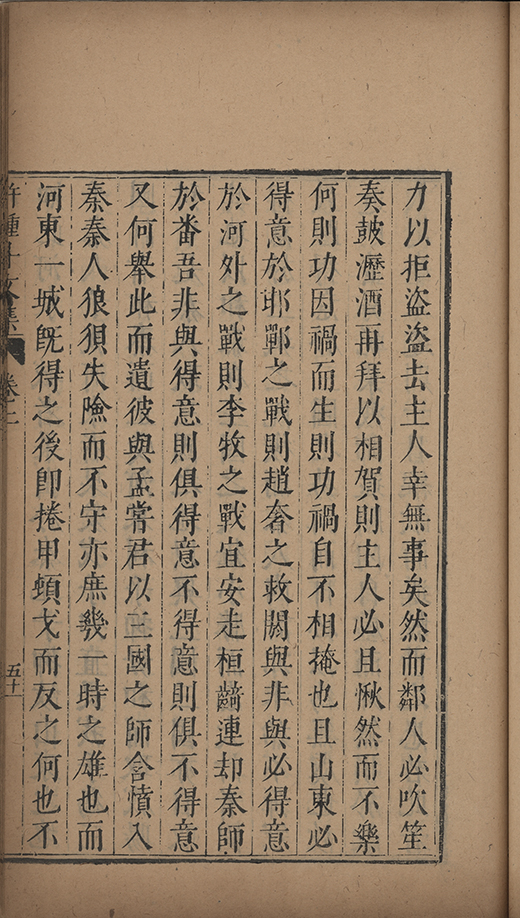 力以拒盜盜去主人幸無事矣然而鄰人必吹笙
奏鼓瀝酒再拜以相賀則主人必且愀然而不樂
何則功因禍而生則功禍自不相掩也且山東必
得意於邯鄲之戰則趙奢之救閼與非與必得意
於河外之戰則李牧之戰宜安走桓齮連却秦師
於番吾非與得意則俱得意不得意則俱不得意
又何舉此而遺彼與孟嘗君以三國之師含憤入
秦秦人狼狽失險而不守亦庶幾一時之雄也而
河東一城既得之後卽捲甲頓戈而反之何也不
卷二
五十一